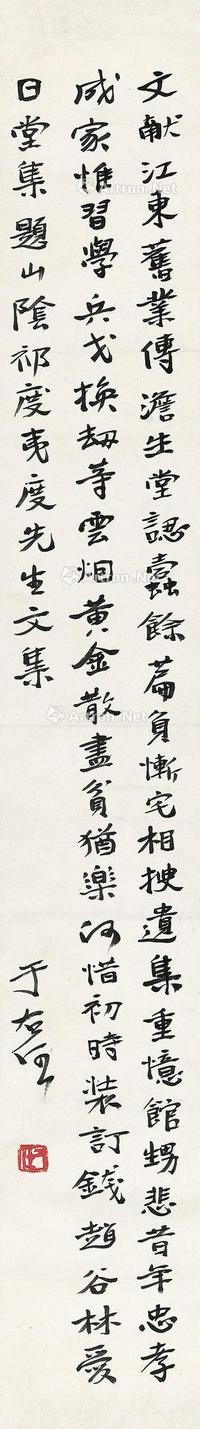 文献江東舊業傳澹生堂認蠹餘篇負慚宅相抉遺集重憶館甥悲昔年忠孝
成家惟習學兵戈換劫等雲烟黄金散盡貧猶樂何惜初時裝訂錢趙谷林愛
日堂集題山陰祁度夷度先生文集
于右任
Artron.Net
Artron.Net
Artron.Net
Artron.Net
Artron.Net